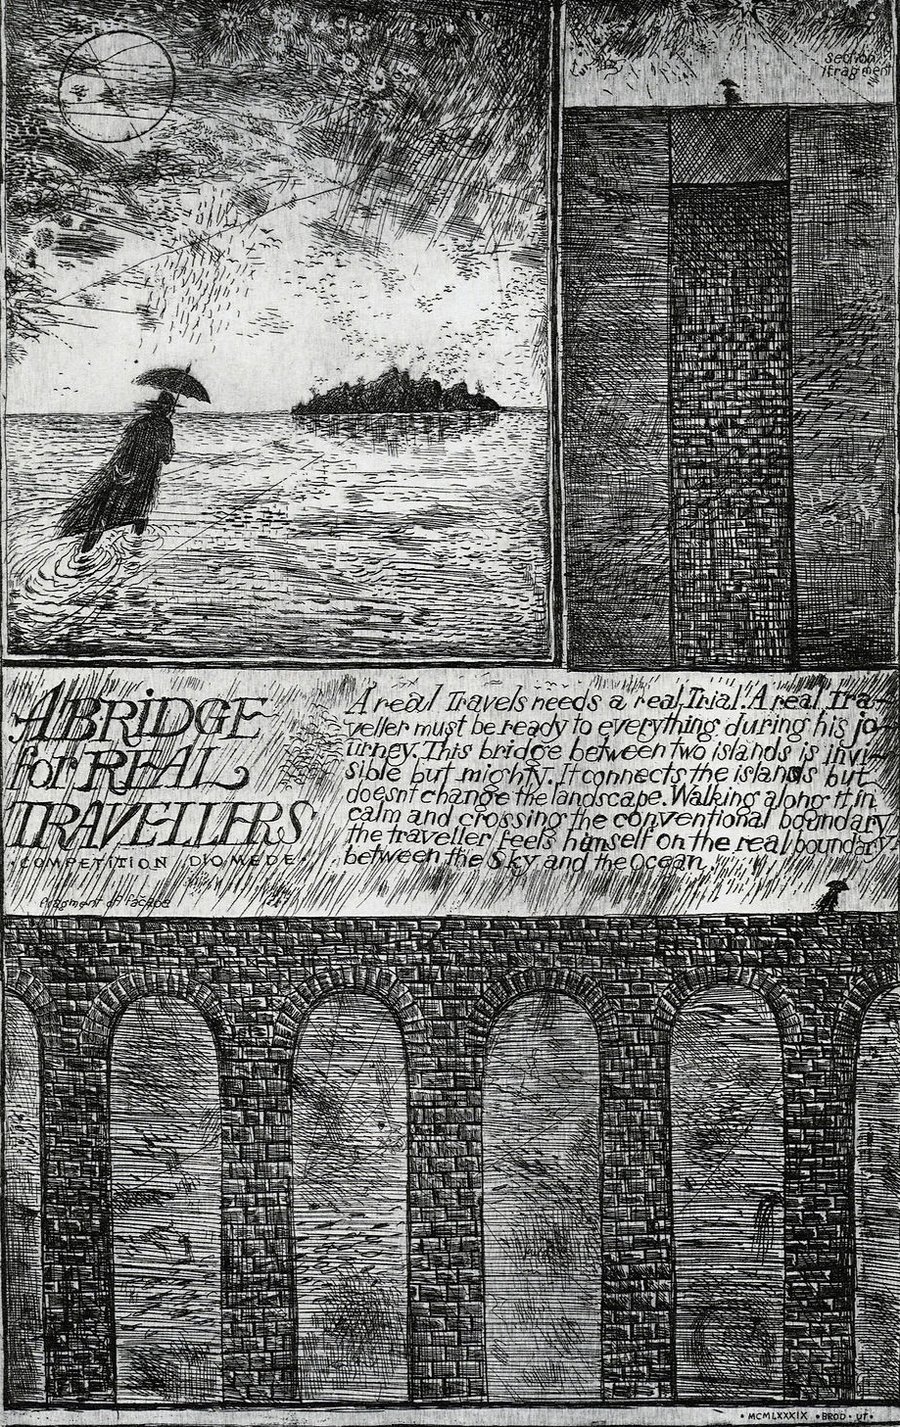 section
/fragment
A BRIDGE
for REAL
TRAVELLERS
•COMPETITION DIOMEDE•
A real Travels needs a real Trial. A real Tra-
veller must be ready to everything during his jo-
urney. This bridge between two islands is invi-
sible but mighty. It connects the islands but
doesnt change the landscape. Walking along it in
calm and crossing the conventional boundary
the traveller feels himself on the real boundary
between the Sky and the Ocean.
fragment of facade
• MCMLXXXIX • BROD • UT •